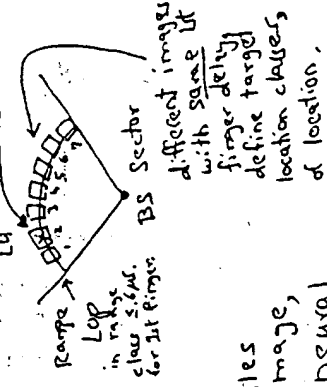 L9
1 2 3 4 5 6 7
Range
LOP
in range
class 5.6 µs.
for 1st finger.
BS
Sector
different images
with same 1st
finger delay
define target
location classes,
of location.
les
mage,
neural